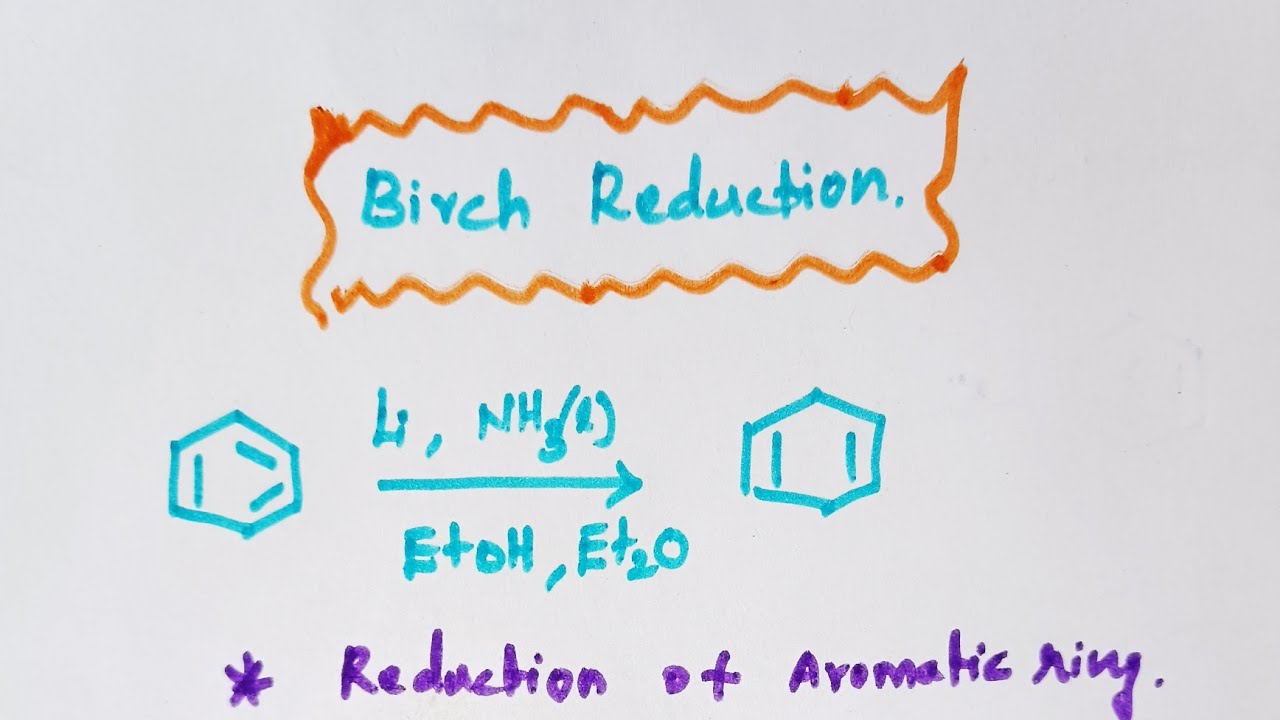 Birch Reduction.
Li, NH3(l)
EtOH, Et2O
* Reduction of Aromatic ring.